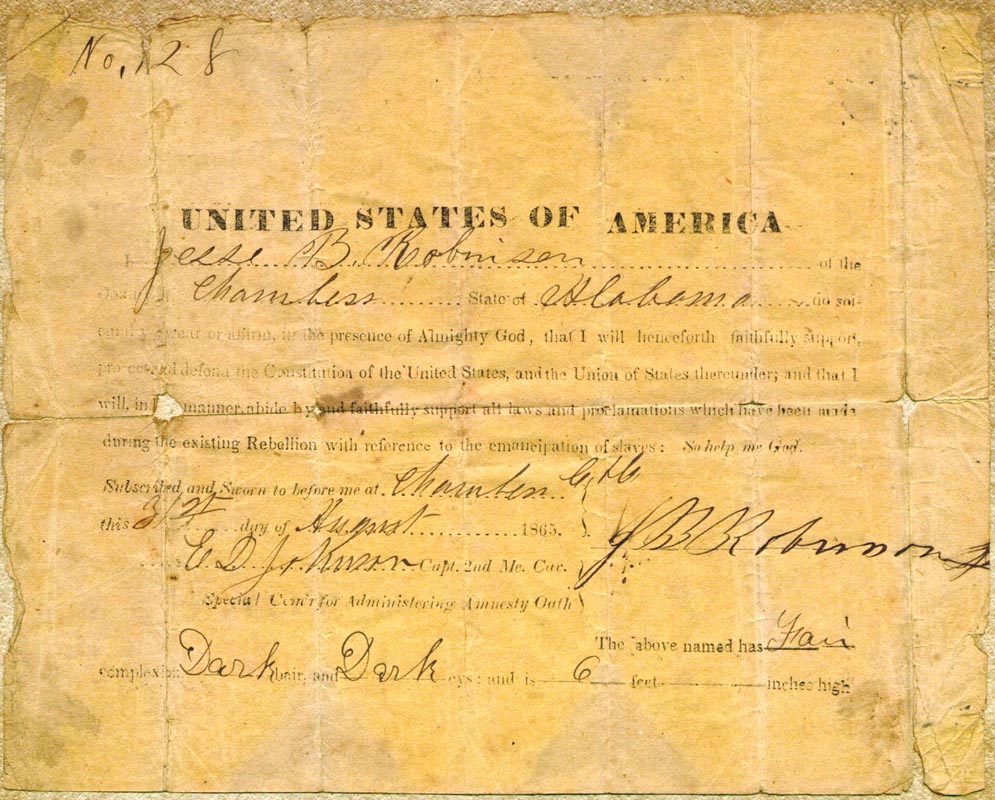 No. 128
UNITED STATES OF AMERICA
I Jesse B. Robinson of the
Chambers State of Alabama do sol-
emnly swear or affirm, in the presence of Almighty God, that I will henceforth faithfully support,
protect and defend the Constitution of the United States, and the Union of States thereunder; and that I
will, in manner, abide by and faithfully support all laws and proclamations which have been made
during the existing Rebellion with reference to the emancipation of slaves: So help me God.
Subscribed and Sworn to before me at Chambers
this 31st day of August 1865.
J B Robinson
E. D. Johnson Capt. 2nd Me. Cav.
Special Com'r for Administering Amnesty Oath
The above named has Fair
complexion Dark hair, and Dark eys; and is 6 feet inches high